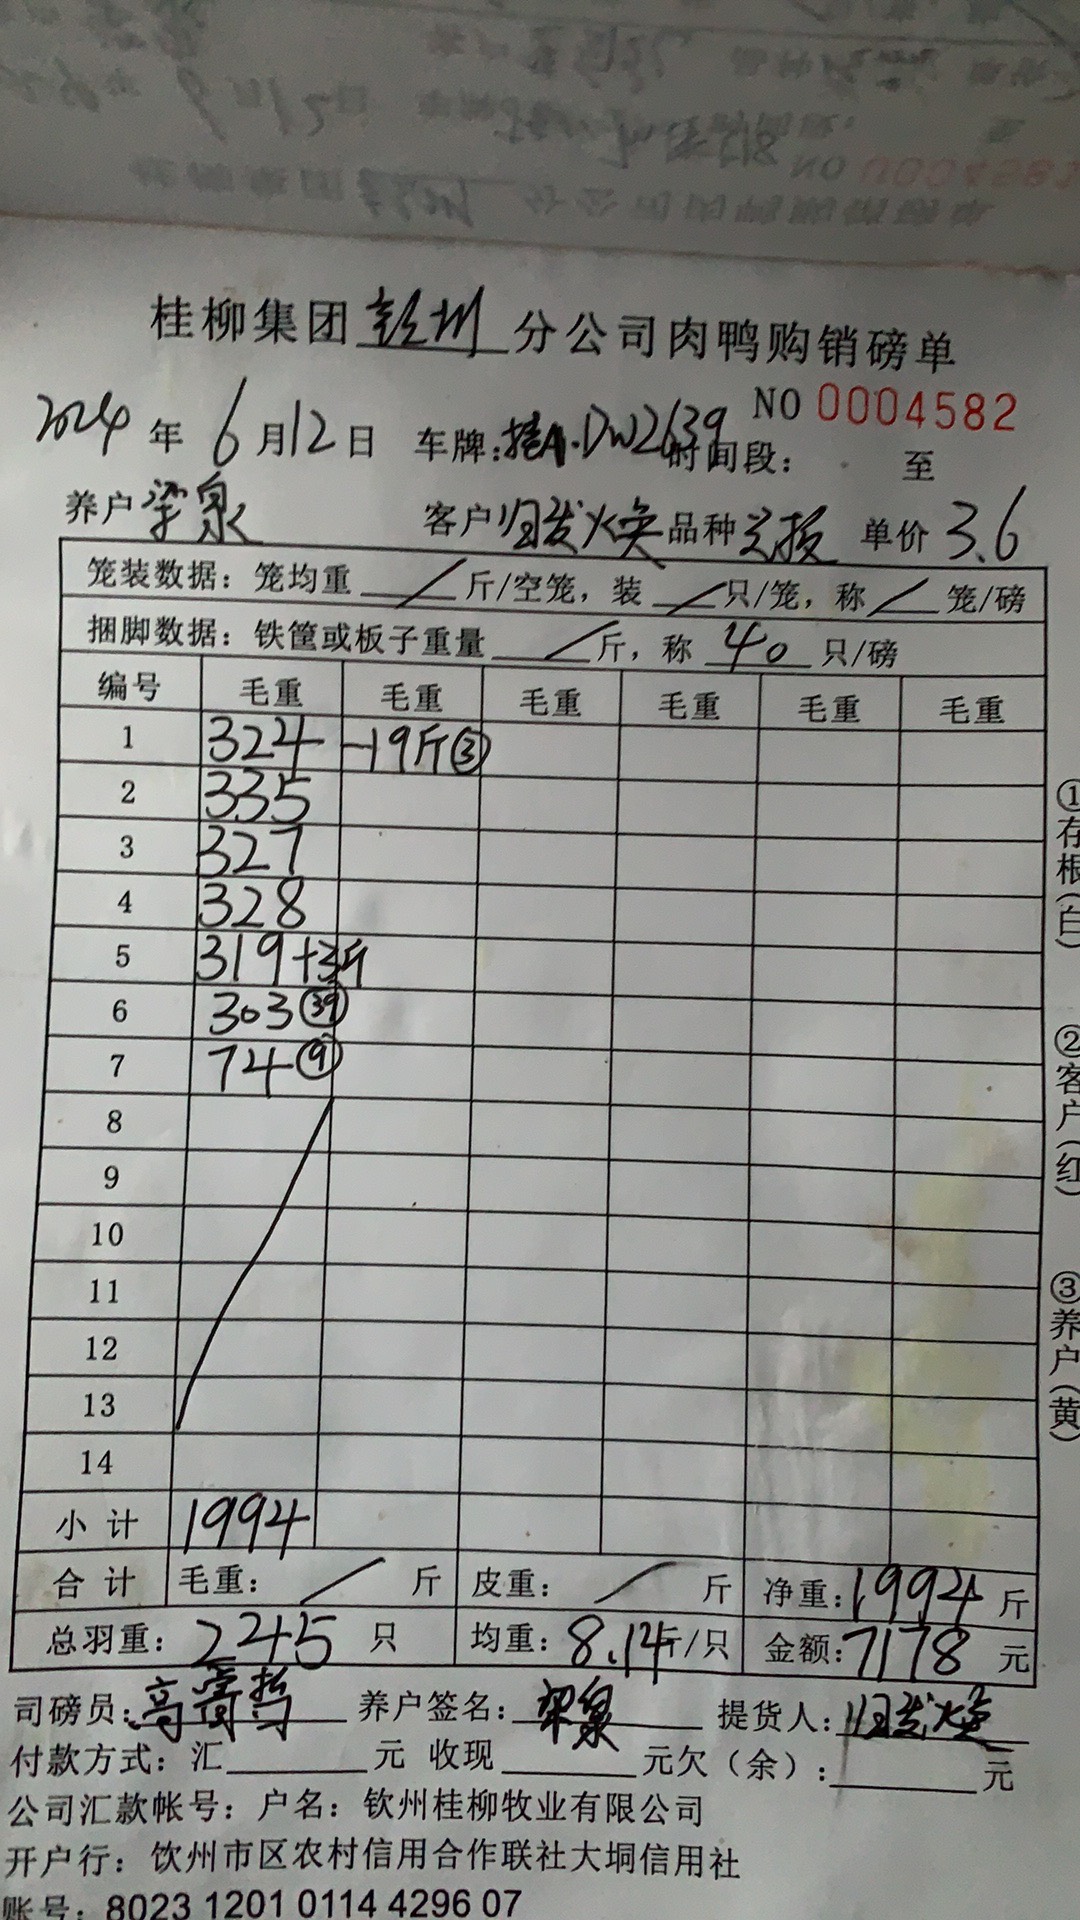 NO 0004581
桂柳集团钦州分公司肉鸭购销磅单
NO 0004582
2024年6月12日 车牌:桂A·DW2639 时间段: 至
养户 梁泉 客户 发焕 品种 单价 3.6
笼装数据:笼均重 / 斤/空笼,装 / 只/笼,称 / 笼/磅
捆脚数据:铁筐或板子重量 / 斤,称 40 只/磅
编号 毛重 毛重 毛重 毛重 毛重 毛重
1 324 -19斤③
2 335
3 327
4 328
5 319+3斤
6 303㊴
7 74⑨
8
9
10
11
12
13
14
小计 1994
合计 毛重: / 斤 皮重: / 斤 净重:1994斤
总羽重:245只 均重:8.14斤/只 金额:7178元
司磅员:高 养户签名:梁泉 提货人:发焕
付款方式:汇 元 收现 元欠(余): 元
公司汇款帐号:户名:钦州桂柳牧业有限公司
开户行:钦州市区农村信用合作联社大垌信用社
账号:8023 1201 0114 4296 07
①存根(白)
②客户(红)
③养户(黄)